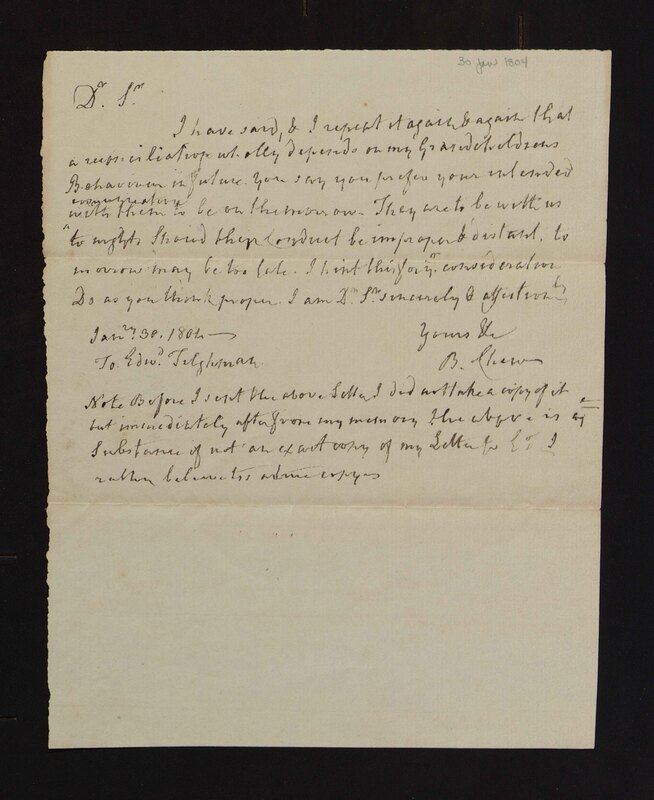 30 Jan 1804
Dr. Sr.
I have said, & I repeat it again & again that
a reconciliation wholly depends on my Grandchildrens
Behaviour in future. You say you prefer your intended
conversation
with them to be on the morrow. They are to be with us
to night. Should their Conduct be improper & distant, to
morrow may be too late. I hint this for yr. consideration
Do as you think proper. I am Dr. Sr. sincerely & affectionly
Jany. 30. 1804
Yours &c
To Edwd. Tilghman
B. Chew
Note Before I sent the above Letter I did not take a copy of it
but immediately after from my memory the above is a
Substance if not an exact copy of my Letter to E T I
rather believe